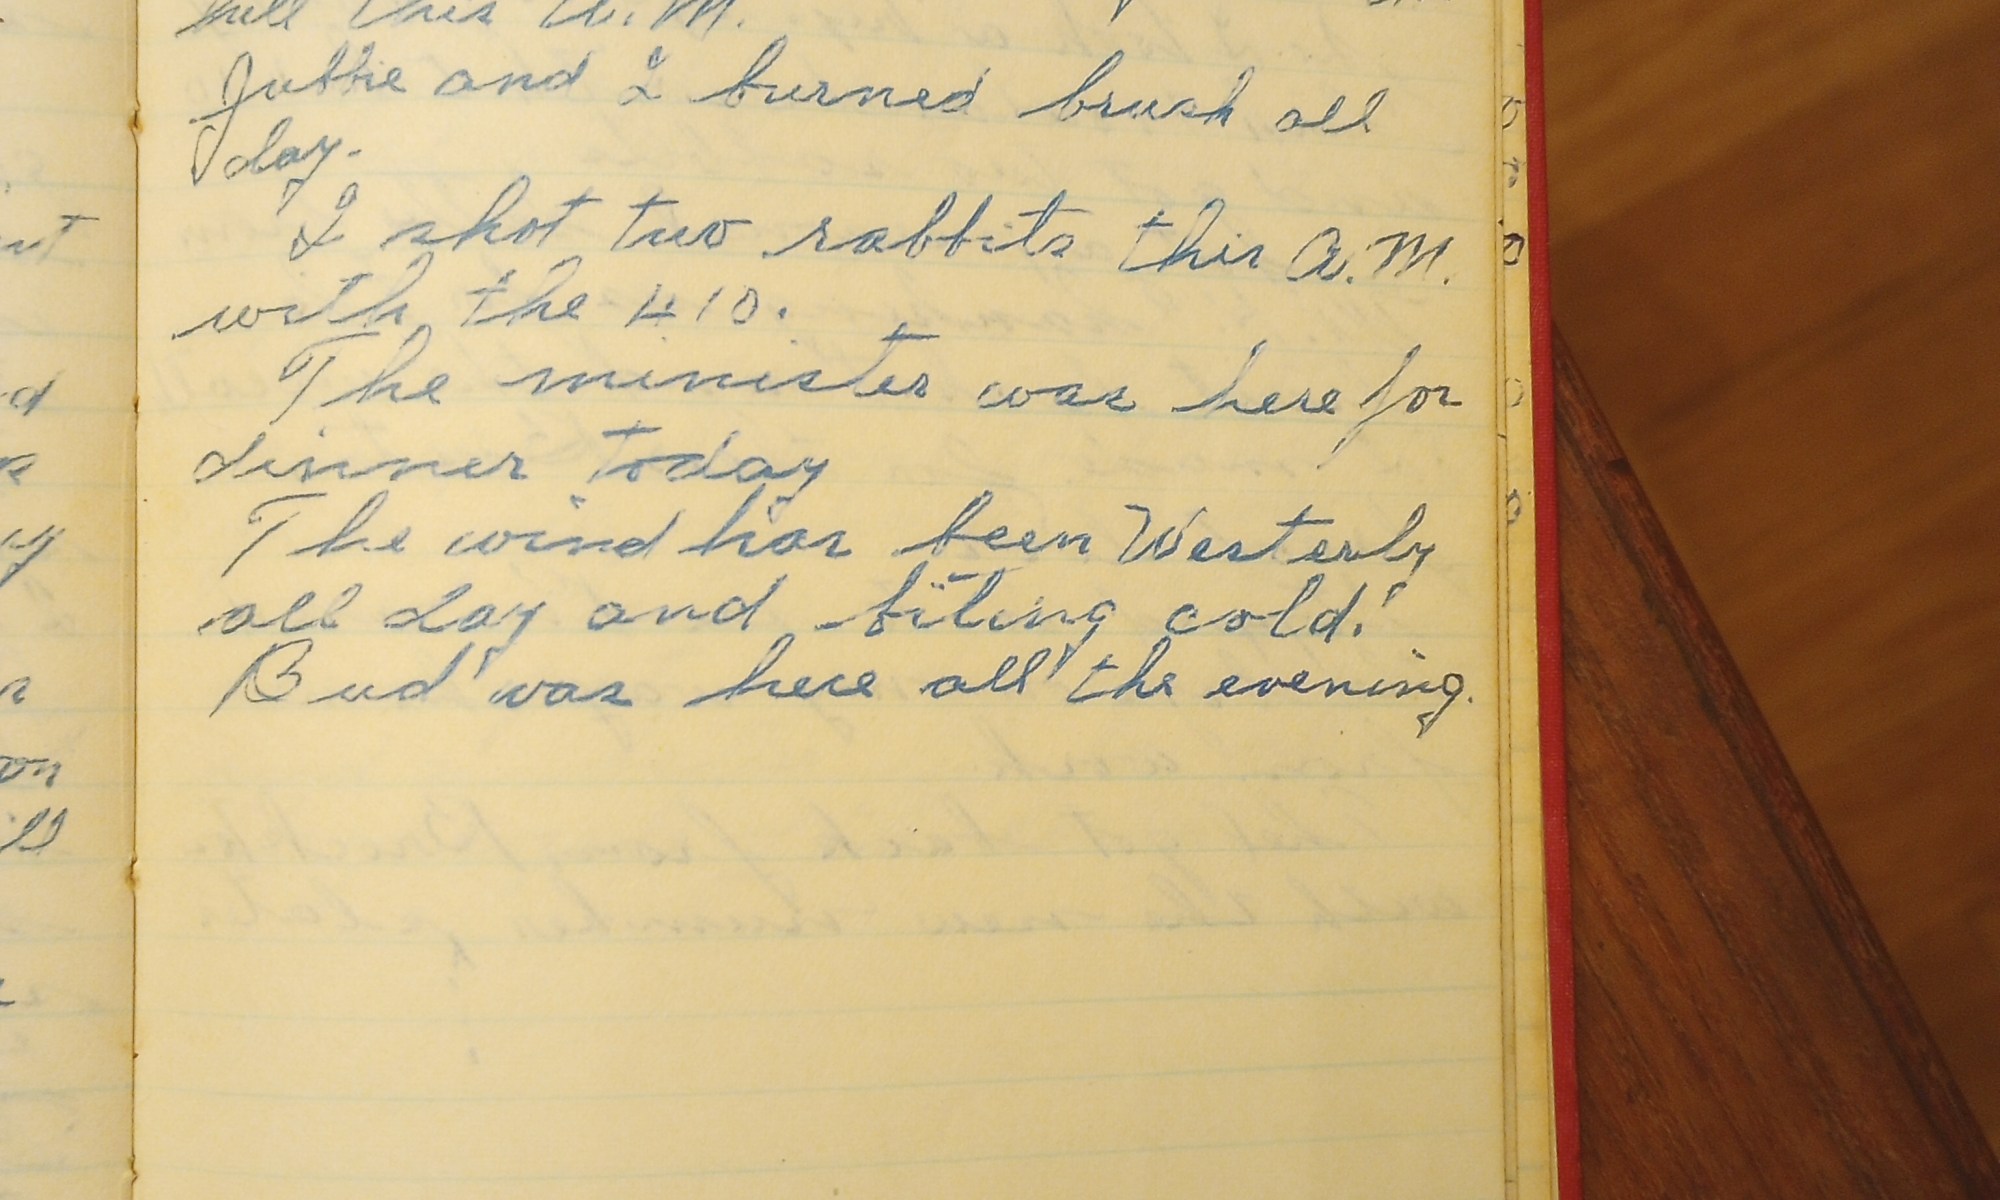 hill this A.M.
Jubbie and I burned brush all
day.
I shot two rabbits this A.M.
with the 410.
The minister was here for
dinner today
The wind has been Westerly
all day and biting cold!
Bud was here all the evening.